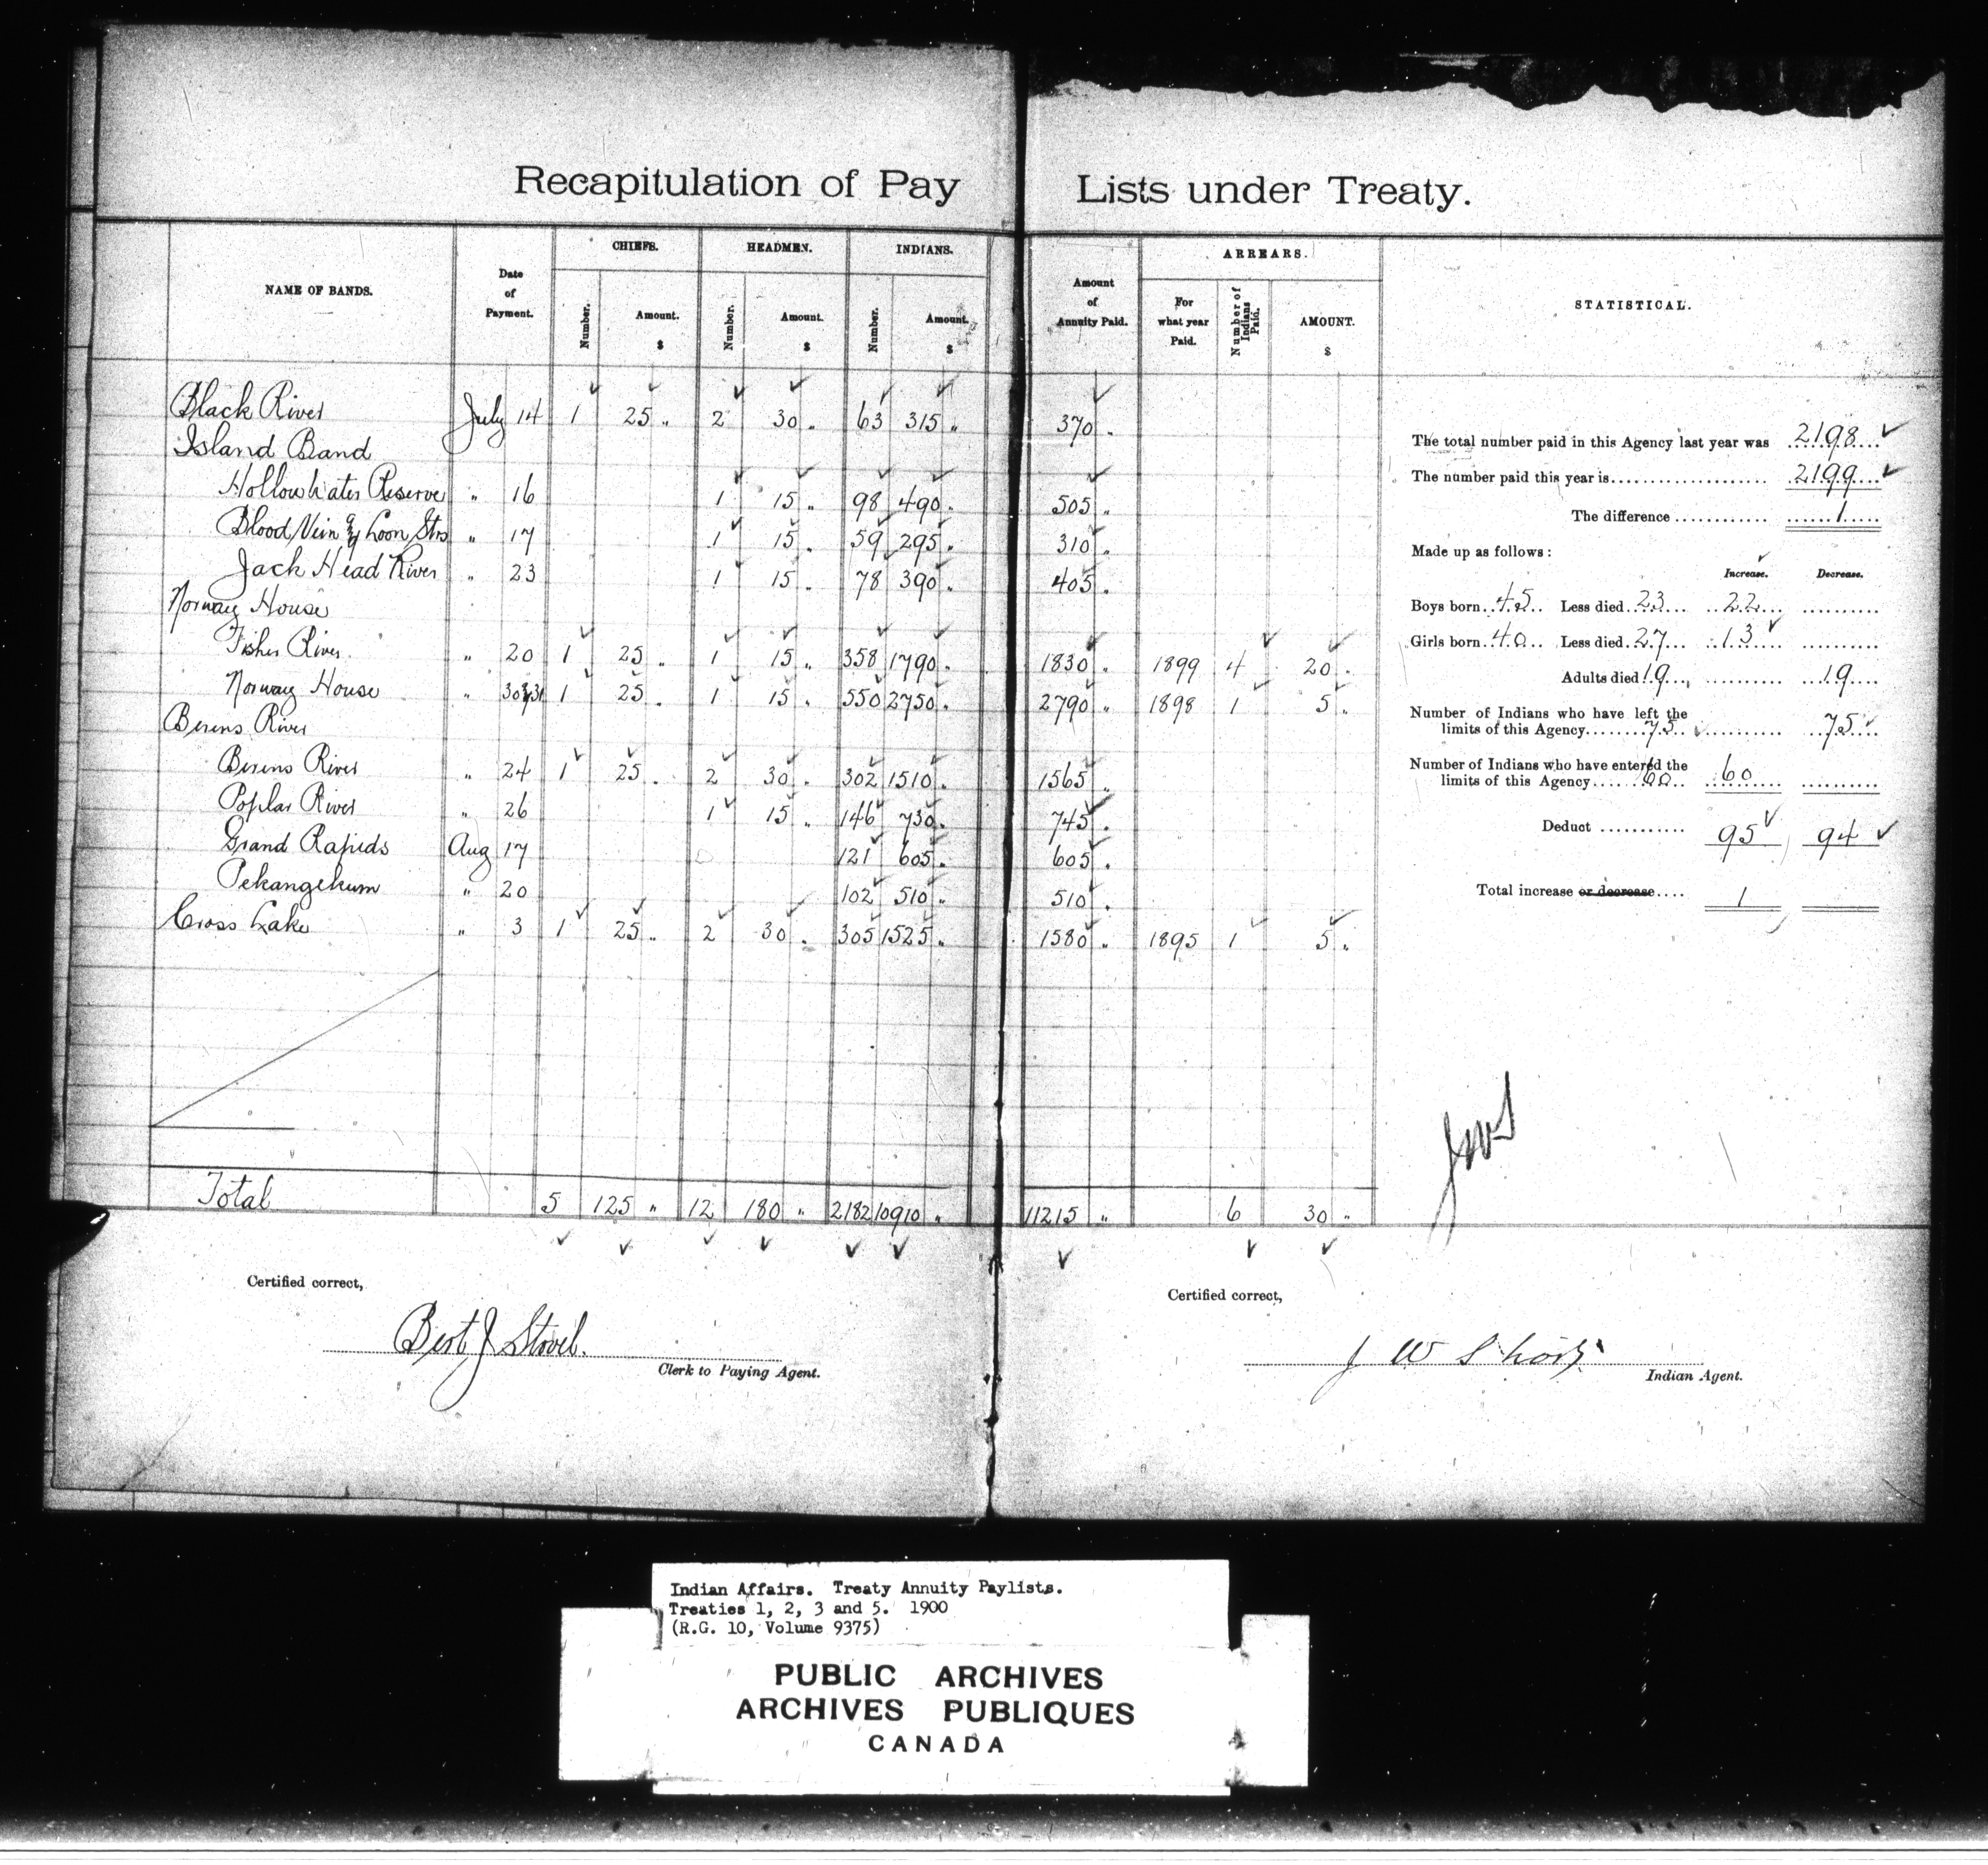 Recapitulation of Pay Lists under Treaty.
NAME OF BANDS. Date of Payment. CHIEFS. HEADMEN. INDIANS. Amount of Annuity Paid. ARREARS. STATISTICAL.
Number. Amount. $ Number. Amount. $ Number. Amount. $ For what year Paid. Number of Indians Paid. AMOUNT. $
Black River July 14 1 25 " 2 30 " 63 315 " 370 "
Island Band
Hollow Water Reserve " 16 1 15 " 98 490 " 505 "
Blood Vein & Loon Strs " 17 1 15 " 59 295 " 310 "
Jack Head River " 23 1 15 " 78 390 " 405 "
Norway House
Fisher River " 20 1 25 " 1 15 " 358 1790 " 1830 " 1899 4 20 "
Norway House " 30&31 1 25 " 1 15 " 550 2750 " 2790 " 1898 1 5 "
Berens River
Berens River " 24 1 25 " 2 30 " 302 1510 " 1565 "
Poplar River " 26 1 15 " 146 730 " 745 "
Grand Rapids Aug 17 121 605 " 605 "
Pekangekum " 20 102 510 " 510 "
Cross Lake " 3 1 25 " 2 30 " 305 1525 " 1580 " 1895 1 5 "
Total 5 125 " 12 180 " 2182 10910 " 11215 " 6 30 "
The total number paid in this Agency last year was 2198
The number paid this year is 2199
The difference 1
Made up as follows:
Increase. Decrease.
Boys born 45 Less died 23 22
Girls born 40 Less died 27 13
Adults died 19 19
Number of Indians who have left the
limits of this Agency 75 75
Number of Indians who have entered the
limits of this Agency 60 60
Deduct 95 94
Total increase or decrease 1
JWS
Certified correct,
Bert J Stovel.
Clerk to Paying Agent.
Certified correct,
J W Short
Indian Agent.
Indian Affairs. Treaty Annuity Paylists.
Treaties 1, 2, 3 and 5. 1900
(R.G. 10, Volume 9375)
PUBLIC ARCHIVES
ARCHIVES PUBLIQUES
CANADA